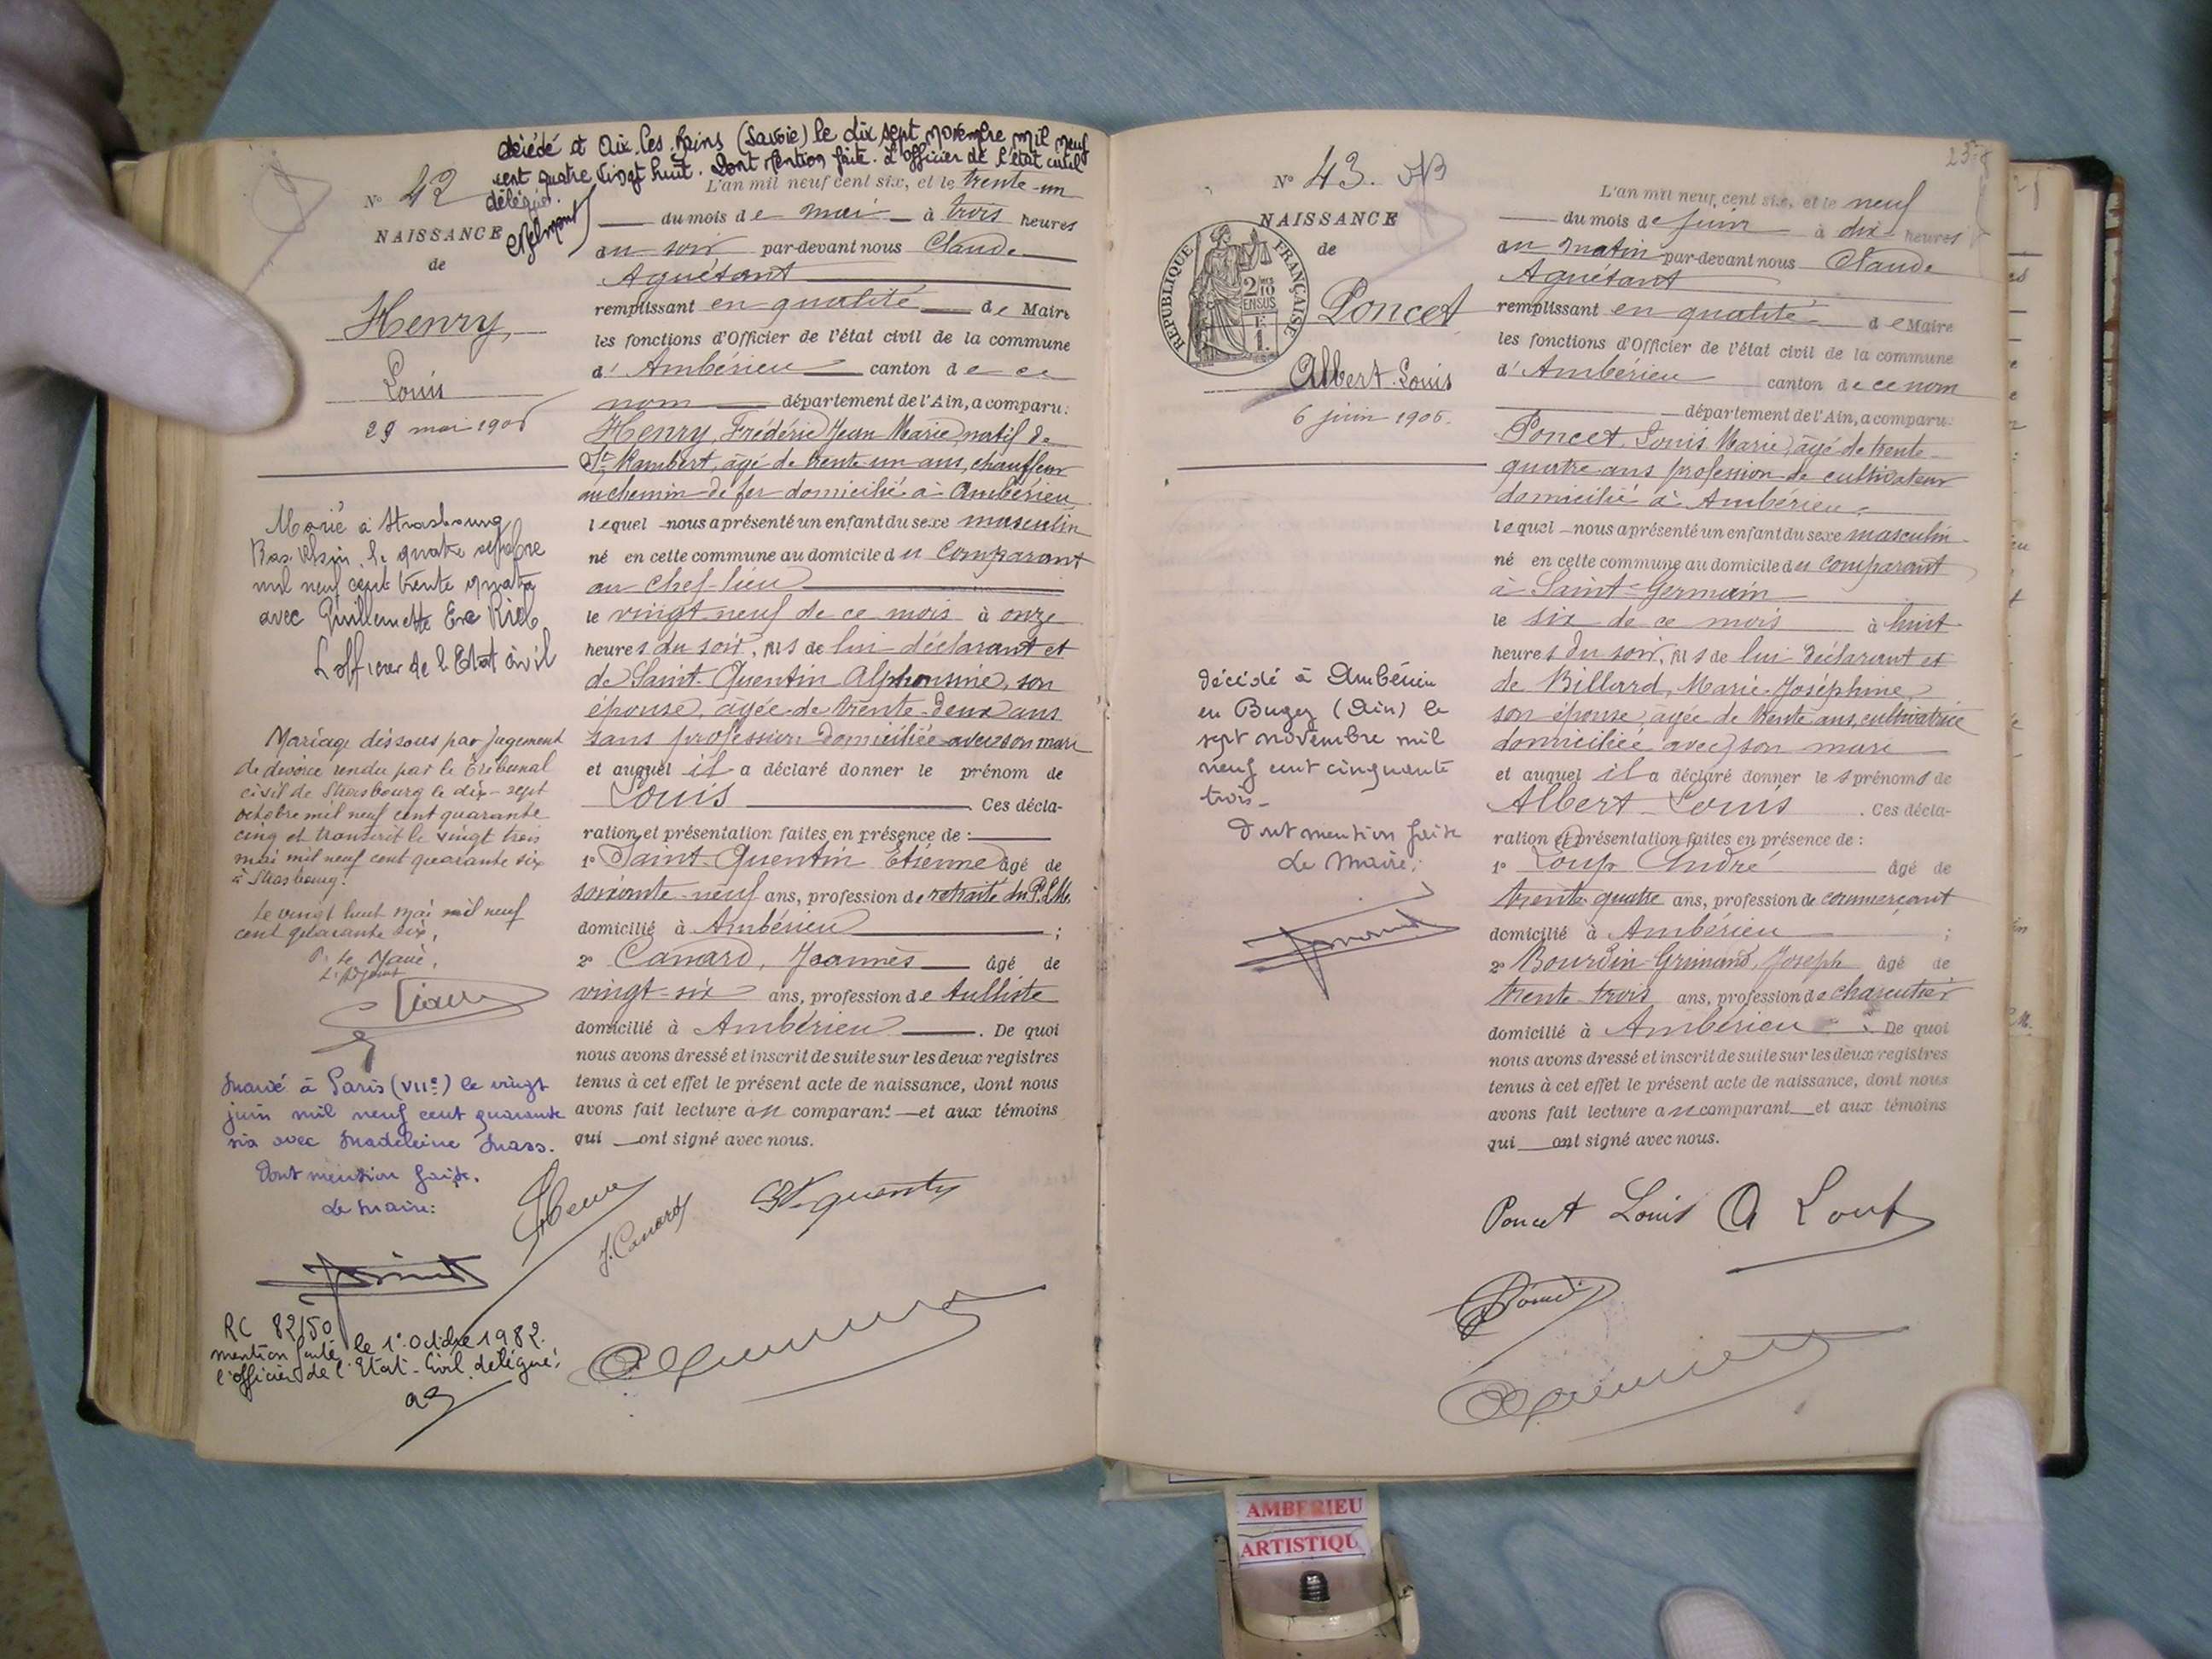 décédé à Aix les Bains (Savoie) le dix sept novembre mil neuf
cent quatre vingt huit. Dont mention faite. L'officier de l'état civil
délégué.
N° 42
NAISSANCE
de
Henry,
Louis
29 mai 1906
Marié à Strasbourg
Bas Rhin, le quatre
mil neuf cent trente quatre
avec Guillemette Eve
L'officier de l'Etat civil
Mariage dissous par jugement
de divorce rendu par le Tribunal
civil de Strasbourg le dix-sept
octobre mil neuf cent quarante
cinq et transcrit le vingt trois
mai mil neuf cent quarante six
à Strasbourg.
Le vingt huit mai mil neuf
cent quarante six,
P. Le Maire,
L'Adjoint
Marié à Paris (VIIe) le vingt
juin mil neuf cent quarante
six avec Madeleine Mass.
Dont mention faite.
Le Maire:
RC 82/50
mention faite le 1° Octobre 1982.
l'officier de l'Etat-Civil délégué:
L'an mil neuf cent six, et le trente-un
du mois de mai à trois heures
du soir par-devant nous Claude
Aguétant
remplissant en qualité de Maire
les fonctions d'Officier de l'état civil de la commune
d'Ambérieu canton de ce
nom département de l'Ain, a comparu:
Henry, Frédéric Jean Marie natif de
St Rambert, âgé de trente-un ans, chauffeur
au chemin de fer domicilié à Ambérieu
lequel nous a présenté un enfant du sexe masculin
né en cette commune au domicile du comparant
au chef-lieu
le vingt-neuf de ce mois à onze
heures du soir, fils de lui déclarant et
de Saint-Quentin Alphonsine, son
épouse, agée de trente-deux ans
sans profession domiciliée avec son mari
et auquel il a déclaré donner le prénom de
Louis Ces décla-
ration et présentation faites en présence de:
1° Saint-Quentin Etienne âgé de
soixante-neuf ans, profession de retraité du P.L.M.
domicilié à Ambérieu ;
2° Canard, Joannès âgé de
vingt-six ans, profession de tulliste
domicilié à Ambérieu. De quoi
nous avons dressé et inscrit de suite sur les deux registres
tenus à cet effet le présent acte de naissance, dont nous
avons fait lecture au comparant et aux témoins
qui ont signé avec nous.
J. Canard
St quentin
258
N° 43.
NAISSANCE
de
REPUBLIQUE FRANÇAISE
2/10
EN SUS
Poncet
Albert-Louis
6 juin 1906.
décédé à Ambérieu
en Bugey (Ain) le
sept novembre mil
neuf cent cinquante
trois-
Dont mention faite
Le Maire:
L'an mil neuf cent six, et le neuf
du mois de juin à dix heures
du matin par-devant nous Claude
Aguétant
remplissant en qualité de Maire
les fonctions d'Officier de l'état civil de la commune
d'Ambérieu canton de ce nom
département de l'Ain, a comparu:
Poncet, Louis Marie, âgé de trente-
quatre ans profession de cultivateur
domicilié à Ambérieu,
lequel nous a présenté un enfant du sexe masculin
né en cette commune au domicile du comparant
à Saint-Germain
le six de ce mois à huit
heures du soir, fils de lui déclarant et
de Billard, Marie-Joséphine,
son épouse, agée de trente ans, cultivatrice
domiciliée avec son mari
et auquel il a déclaré donner les prénoms de
Albert-Louis. Ces décla-
ration et présentation faites en présence de:
1° Loup André âgé de
trente-quatre ans, profession de commerçant
domicilié à Ambérieu ;
2° Bourdin-Grimaud, Joseph âgé de
trente-trois ans, profession de charcutier
domicilié à Ambérieu. De quoi
nous avons dressé et inscrit de suite sur les deux registres
tenus à cet effet le présent acte de naissance, dont nous
avons fait lecture au comparant et aux témoins
qui ont signé avec nous.
Poncet Louis A Loup
AMBERIEU
ARTISTIQU